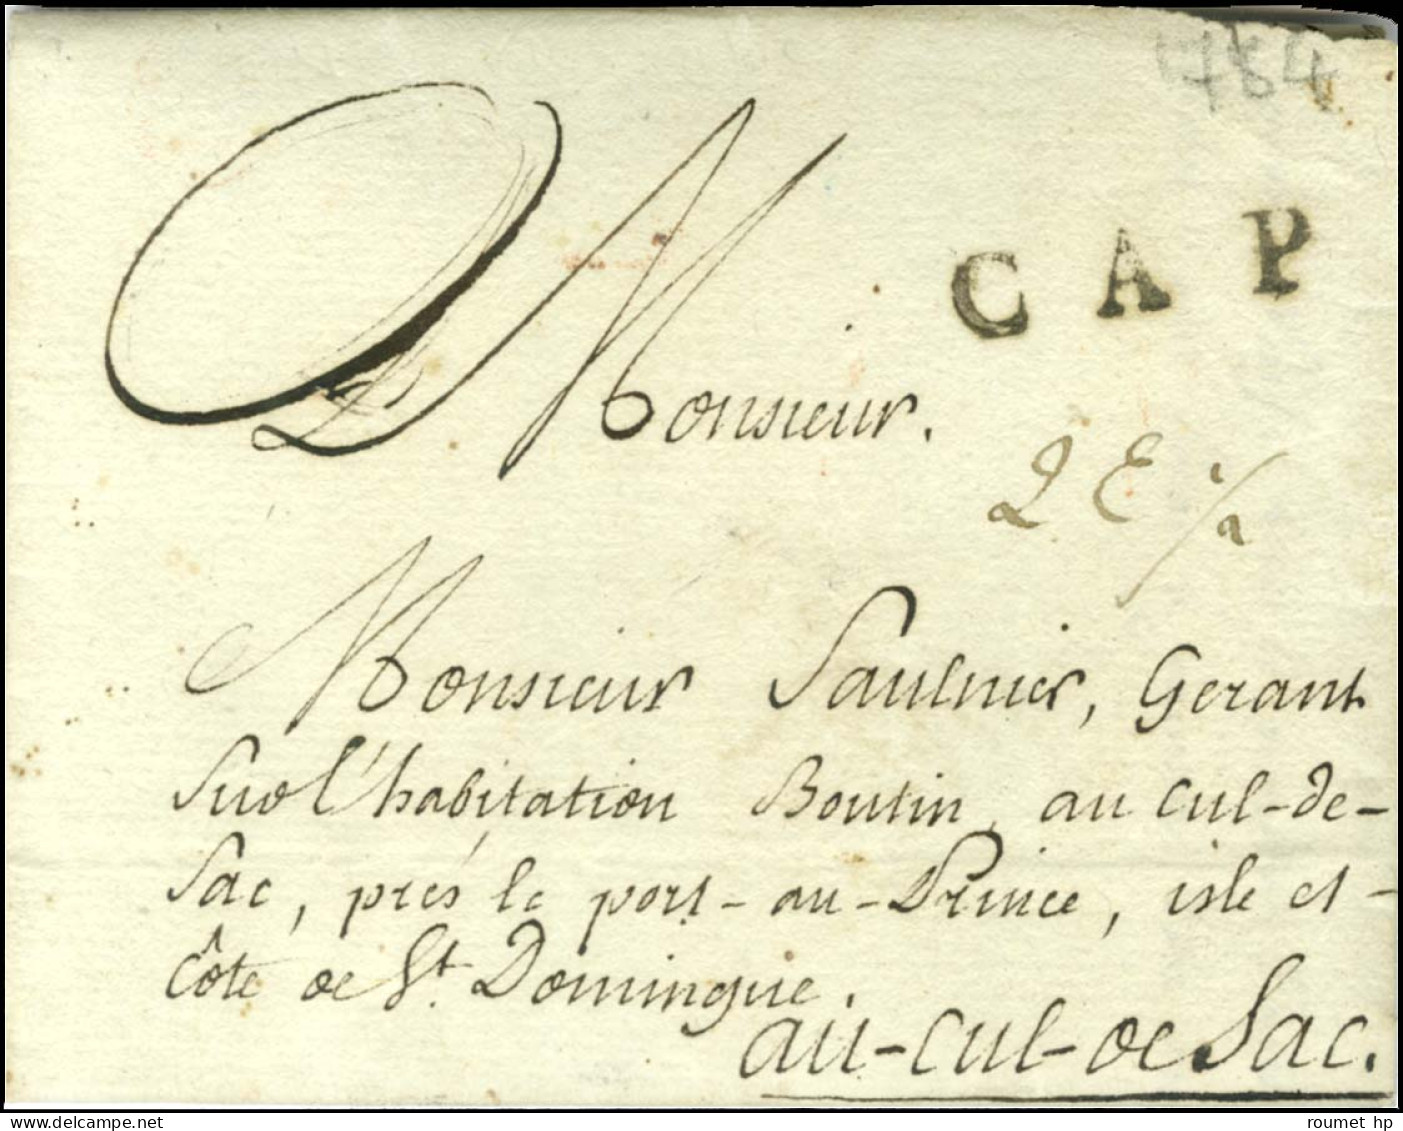 1784
CAP
Monsieur.
2 E 1/2
Monsieur Saulnier, Gerant
Sur l'habitation Boutin, au cul-de-
Sac, près le port-au-Prince, isle et-
Côte de St. Domingue.
au-cul-de Sac.
roumet hp